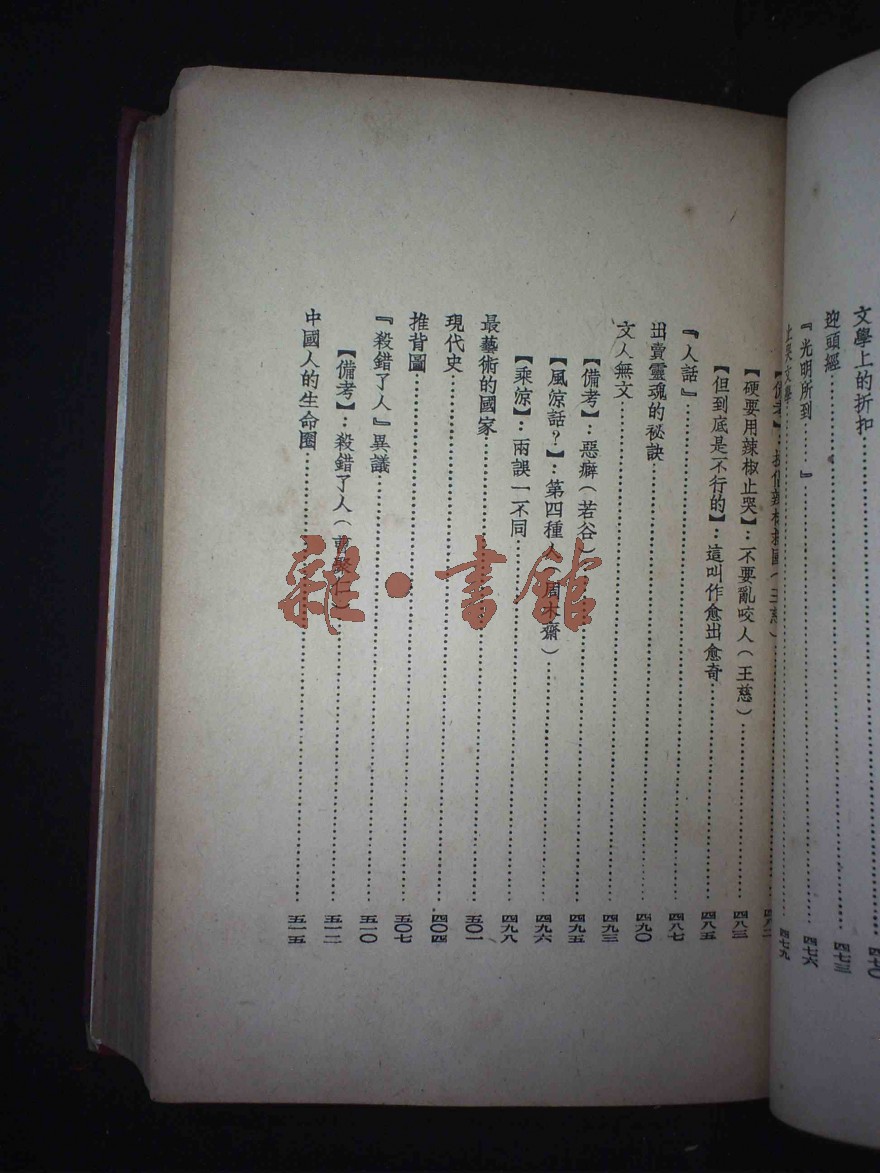 文學上的折扣……四七〇
迎頭經……四七三
『光明所到……』……四七六
止哭文學……四七九
【備考】：提倡辣椒救國（王慈）……四八二
【硬要用辣椒止哭】：不要亂咬人（王慈）……四八三
【但到底是不行的】：這叫作愈出愈奇……四八五
『人話』……四八七
出賣靈魂的秘訣……四九〇
文人無文……四九三
【備考】：惡癖（若谷）……四九五
【風涼話？】：第四種人（周木齋）……四九六
【乘涼】：兩誤一不同……四九八
最藝術的國家……五〇一
現代史……四〇四
推背圖……五〇七
『殺錯了人』異議……五一〇
【備考】：殺錯了人（曹聚仁）……五一二
中國人的生命圈……五一五
雜·書館